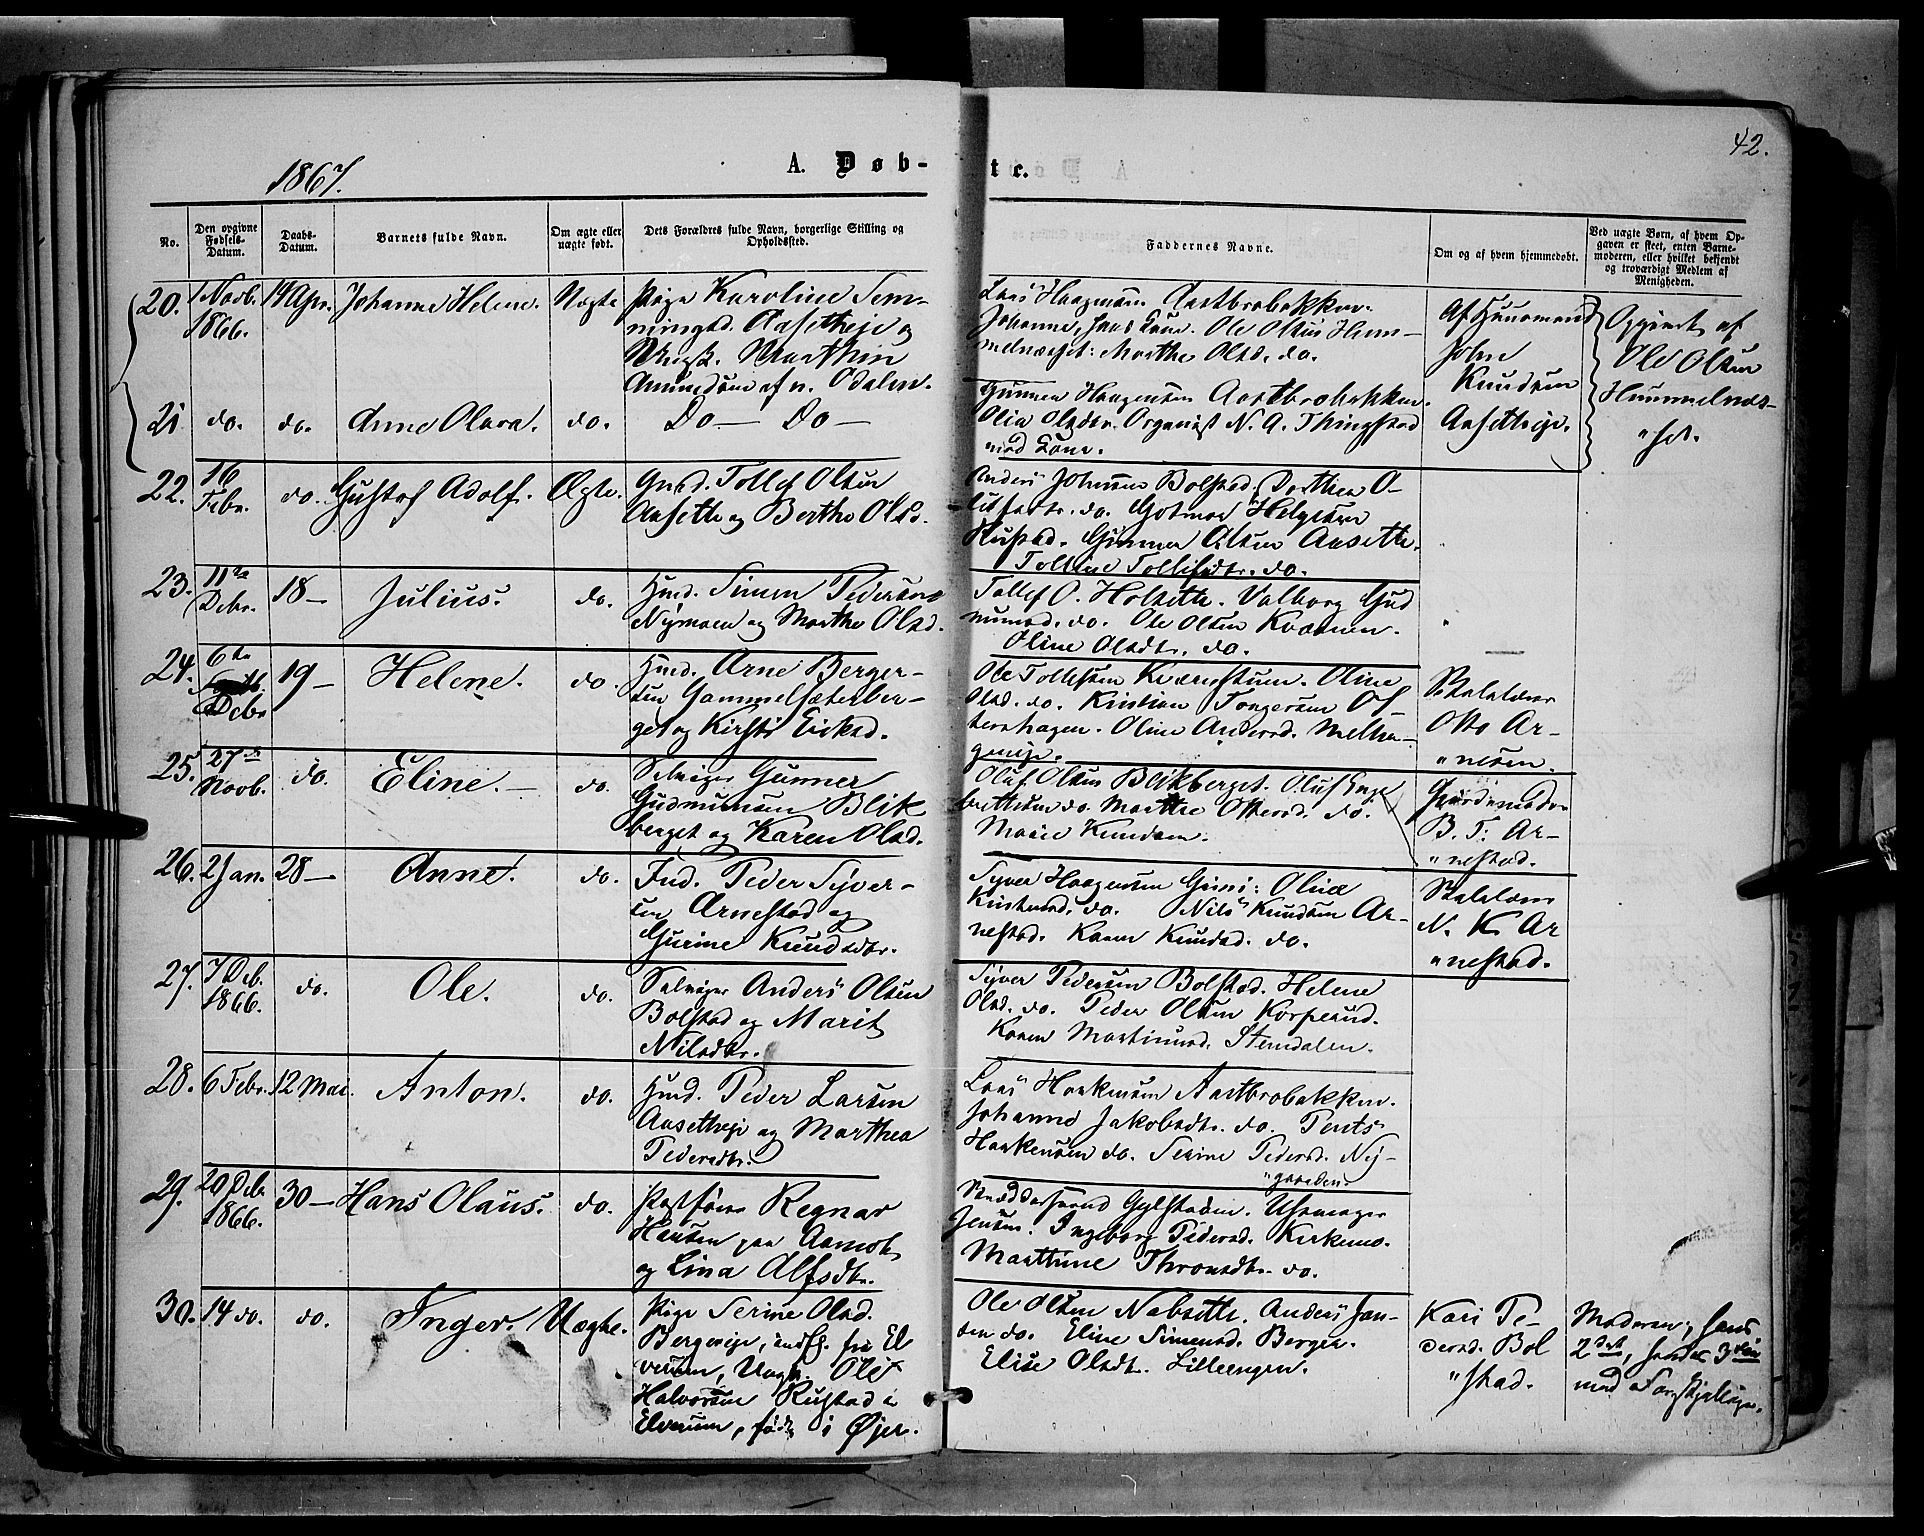 42.
1867.
A. Døb-
te.
No.
Den opgivne Fødsels-Datum.
Daabs-Datum.
Barnets fulde Navn.
Om ægte eller uægte født.
Dets Forældres fulde Navn, borgerlige Stilling og Opholdssted.
Faddernes Navne.
Om og af hvem hjemmedøbt.
Ved uægte Børn, af hvem Opgaven er skeet, enten Barnemoderen, eller hvilket bekjendt og troværdigt Medlem af Menigheden.
20.
1 Novb.
1866.
19 Apr.
Johanne Helene.
Uægte
Pige Karoline Sem-
mingsd. Aasetheje og
Ungk. Marthin
Amundsen af n. Odalen.
Lars Haagensen Aastbrobakken.
Johanne, hans Kone. Ole Olsen Hum-
melnæsset: Marthe Olsd. do.
Af Huusmand
John
Knudsen
Aasetheje.
Opgivet af
Ole Olsen
Hummelnæs-
"set.
21
do.
do.
Anne Olava.
do.
Do — Do —
Gunner Haagensen Aastbrobakken.
Olia Olsdtr. Organist N. A. Thingstad
med Kone.
22.
16
Febr.
do.
Gustaf Adolf.
Ægte.
Gmd. Tollef Olsen
Aaseth og Berthe Olsd.
Anders Johnsen Bolstad. Dorthea
do. Helgesen
Rustad. Gunner Olsen Aaseth.
Tolline Tollefsdtr. do.
23.
11te
Debr.
18 —
Julius.
do.
Hmd. Simen Pedersen
Nymoen og Marthe Olsd.
Tollef O. Holseth. Valborg Gud
munsd. do. Ole Olsen Kværnen.
Oline Olsdtr. do.
24.
6te
Debr
19 —
Helene.
do.
Hmd. Arne Berger-
sen Gammelsæterber-
get og Kirsti Eriksd.
Ole Tollefsen Kværnstuen. Oline
Olsd. do. Kristian Torgersen Of-
tershagen. Oline Andersd.
Skolelærer
Otto Ar-
"nesen.
25.
27de
Novb.
do.
Eline. —
do.
Selveier Gunner
Gudmunsen Blik
berget og Karen Olsd.
Oluf Olsen Blikberget. Oluf Enge
brettsen do. Marthe Ottersd. do.
Marie Knudsen.
Gjordemoder
B. T. Ar-
"nestad.
26.
2 Jan.
28 —
Anne.
do.
Ind. Peder Syver-
sen Arnestad og
Gurine Knudsdtr.
Syver Haagensen Olia
Kristiansd. do. Nils Knudsen Ar-
nestad. Karen Knudsd. do.
Skolelærer
N. K. Ar
"nestad.
27.
7 Deb.
1866.
do.
Ole.
do.
Selveier Anders Olsen
Bolstad og Marit
Nilsdtr.
Syver Pedersen Bolstad. Helene
Olsd. do. Peder Olsen Korperud.
Karen Martinusd. Stendalen.
28.
6 Febr.
12 Mai.
Anton.
do.
Hmd. Peder Larsen
Aasetheje og Marthea
Pedersdtr.
Lars Haakensen Aastbrobakken.
Johanne Jakobsdtr. do. Pents
Haakensen do. Serine Pedersd. Ny-
"gaarden.
29.
20 Deb.
1866.
30 —
Hans Olaus.
do.
Postfører Regnar
Hansen paa Aamot
og Lina Alfsdtr.
Gylstrøm. Uhrmager
Jensen. Ingeborg Pedersd. Kirkemo.
Marttine Thronsdtr. do.
30.
14 do.
do.
Inger.
Uægte.
Pige Serine Olsd.
Bergereje, indfl. fra El
verum, Ungk. Ole
Halvorsen Rustad i
Elverum, født i Øjer.
Ole Olsen Nabseth. Anders Jan-
sen do. Eline Simensd. Berger.
Elise Olsdt. Lilleengen.
Kari Pe-
dersd. Bol
"stad.
Moderen, hans
2det, hendes 3die
med